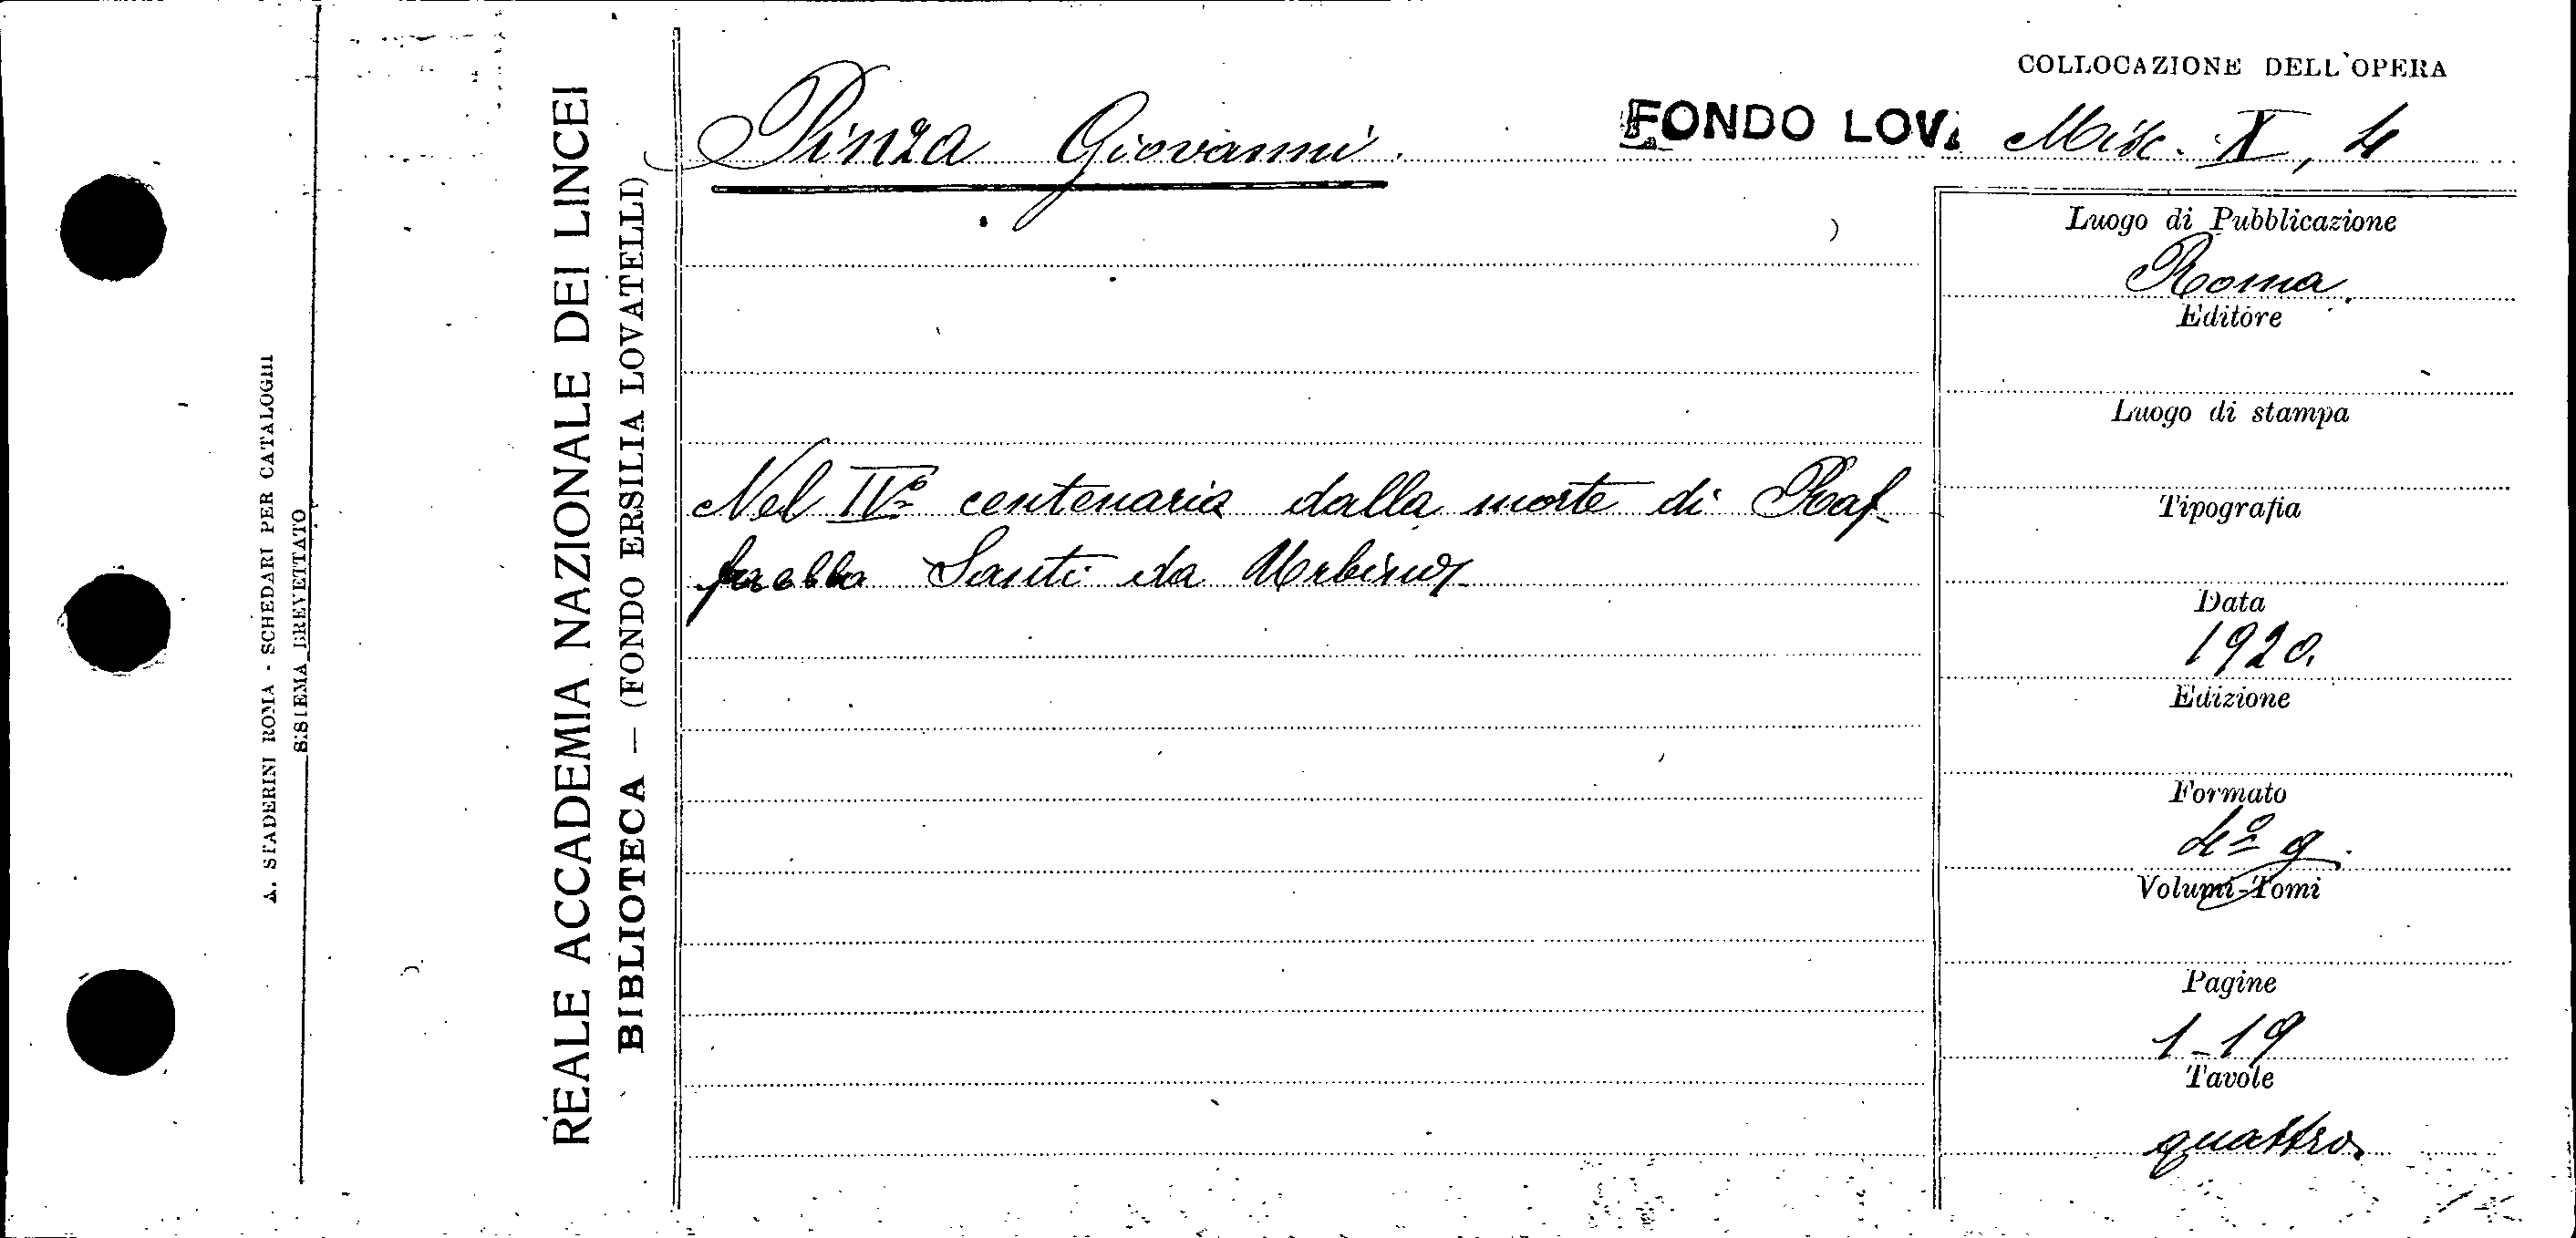 COLLOCAZIONE DELL'OPERA
Pinza Giovanni.
FONDO LOV.
Misc. X, 4
Luogo di Pubblicazione
Roma.
Editore
Luogo di stampa
Nel IVº centenario dalla morte di Raf-
faello Santi da Urbino
Tipografia
Data
1920.
Edizione
Formato
4º g.
Volumi-Tomi
Pagine
1-19
Tavole
quattro.
REALE ACCADEMIA NAZIONALE DEI LINCEI
BIBLIOTECA — (FONDO ERSILIA LOVATELLI)
A. STADERINI ROMA - SCHEDARI PER CATALOGHI
SISIEMA BREVETTATO